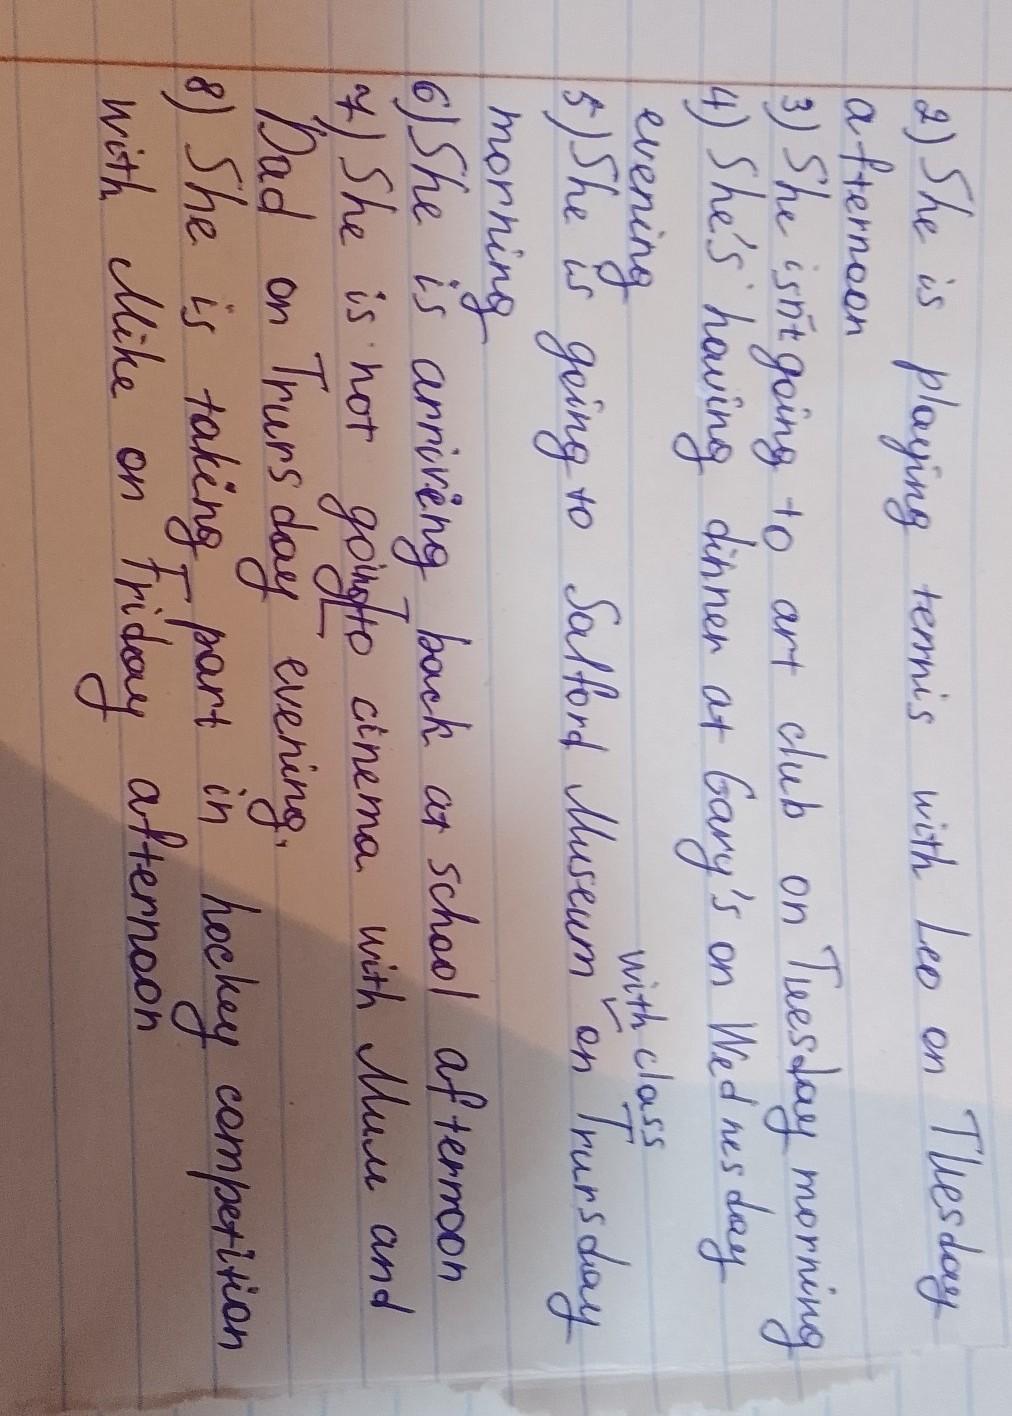 2) She is playing tennis with Leo on Tuesday
afternoon
3) She isn't going to art club on Tuesday morning
4) She's having dinner at Gary's on Wednesday
evening
with class
5) She is going to Salford Museum on Trursday
morning
6) She is arriving back at school afternoon
7) She is not going to cinema with Mum and
Dad on Trursday evening.
8) She is taking part in hockey competition
with Mike on Friday afternoon